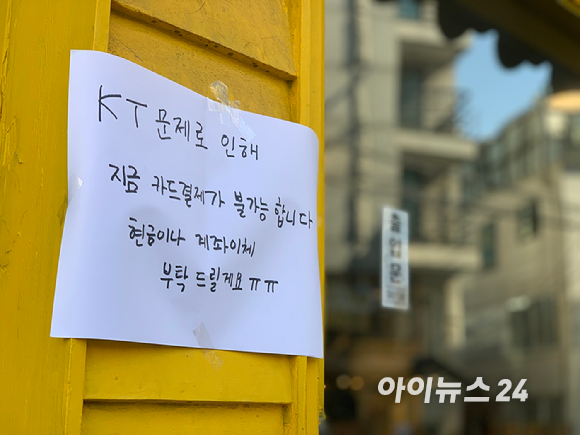 KT 문제로 인해
지금 카드결제가 불가능합니다
현금이나 계좌이체
부탁드릴게요 ㅠㅠ
출입문
아이뉴스24